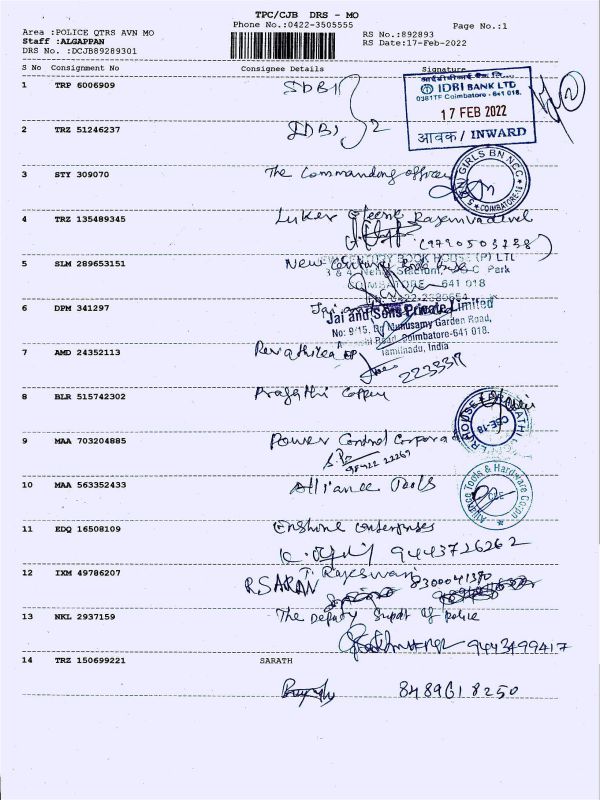 TPC/CJB DRS - MO
Phone No.:0422-3505555
Page No.:1
Area :POLICE QTRS AVN MO
Staff :ALGAPPAN
DRS No. :DCJB89289301
RS No.:892893
RS Date:17-Feb-2022
S No Consignment No Consignee Details Signature
1 TRP 6006909 IDBI
आईडीबीआई बैंक लि.
IDBI BANK LTD
0381TF Coimbatore - 641 018.
17 FEB 2022
आवक / INWARD
2 TRZ 51246237 IDBI 2
3 STY 309070 The Commanding officer
GIRLS BN NCC
COIMBATORE-18
4 TRZ 135489345
5 SLM 289653151 New Century Book House
NEW CENTURY BOOK HOUSE (P) LTD
COIMBATORE - 641 018
6 DPM 341297 Jai and Sons
Jai and Sons Private Limited
Coimbatore-641 018.
Tamilnadu, India
7 AMD 24352113
2233317
8 BLR 515742302 Pragathi
CBE-18
9 MAA 703204885 Power Control Corpora
10 MAA 563352433 Alliance Tools
Alliance Tools & Hardware Corpn
CBE
11 EDQ 16508109 Enshine enterprises
9443726262
12 IXM 49786207 T. Rajeswari
R SARAN 8300041370
13 NKL 2937159 The Deputy Supdt of police
9443499417
14 TRZ 150699221 SARATH
8489618250